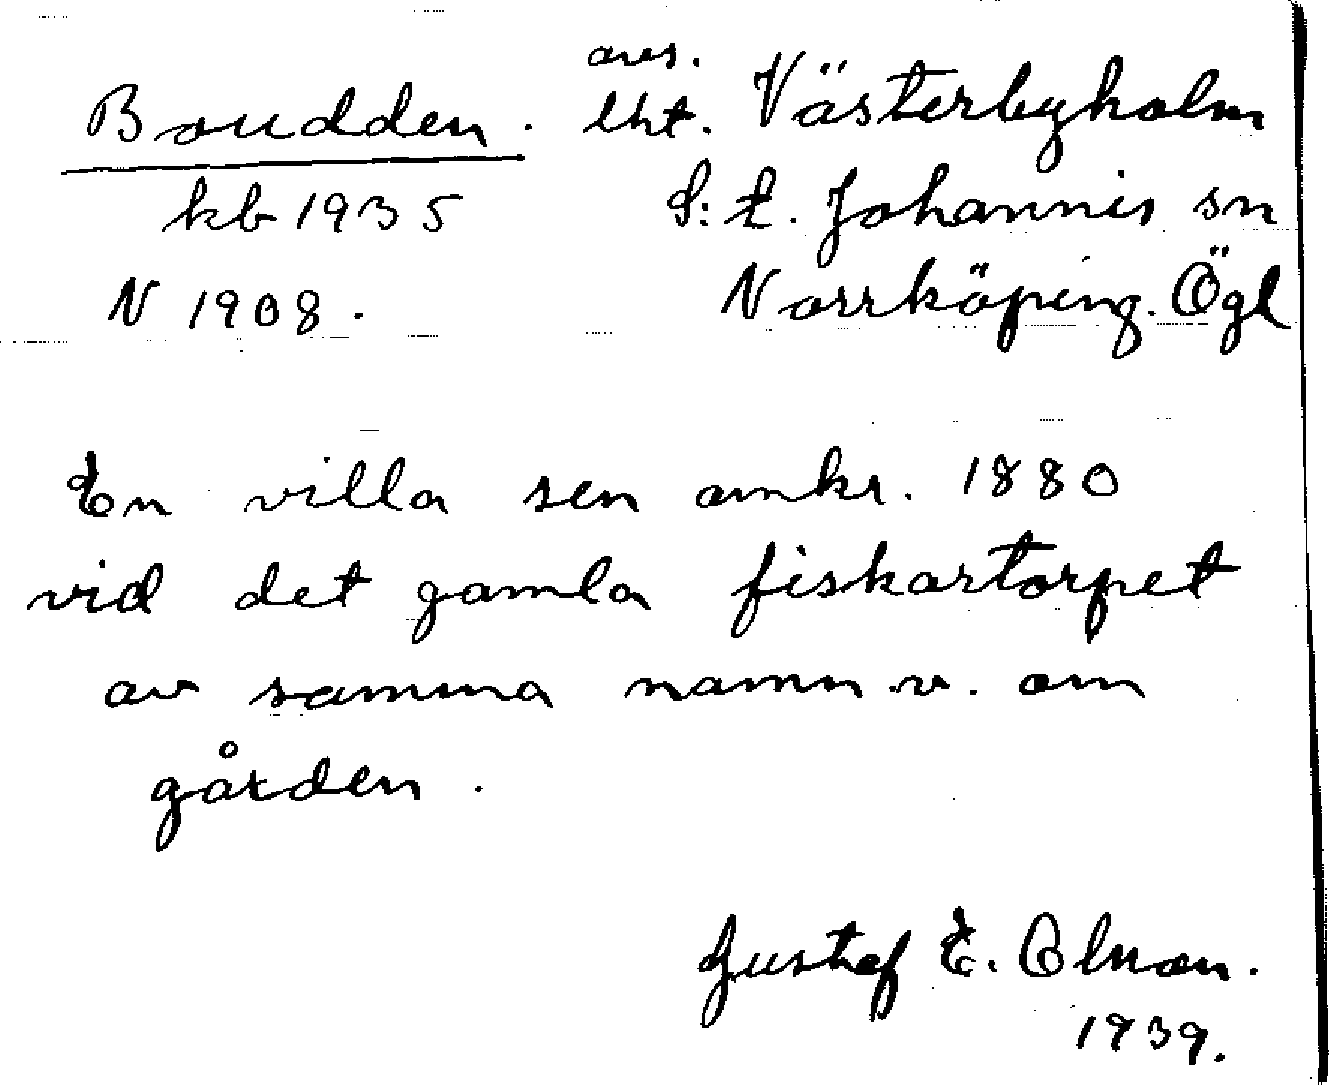 Boudden. avs.
lht. Västerbyholm
kb 1935 S:t. Johannis sn
N 1908. Norrköping. Ögl
En villa sen omkr. 1880
vid det gamla fiskartorpet
av samma namn v. om
gården.
Gustaf E. Olman.
1939.